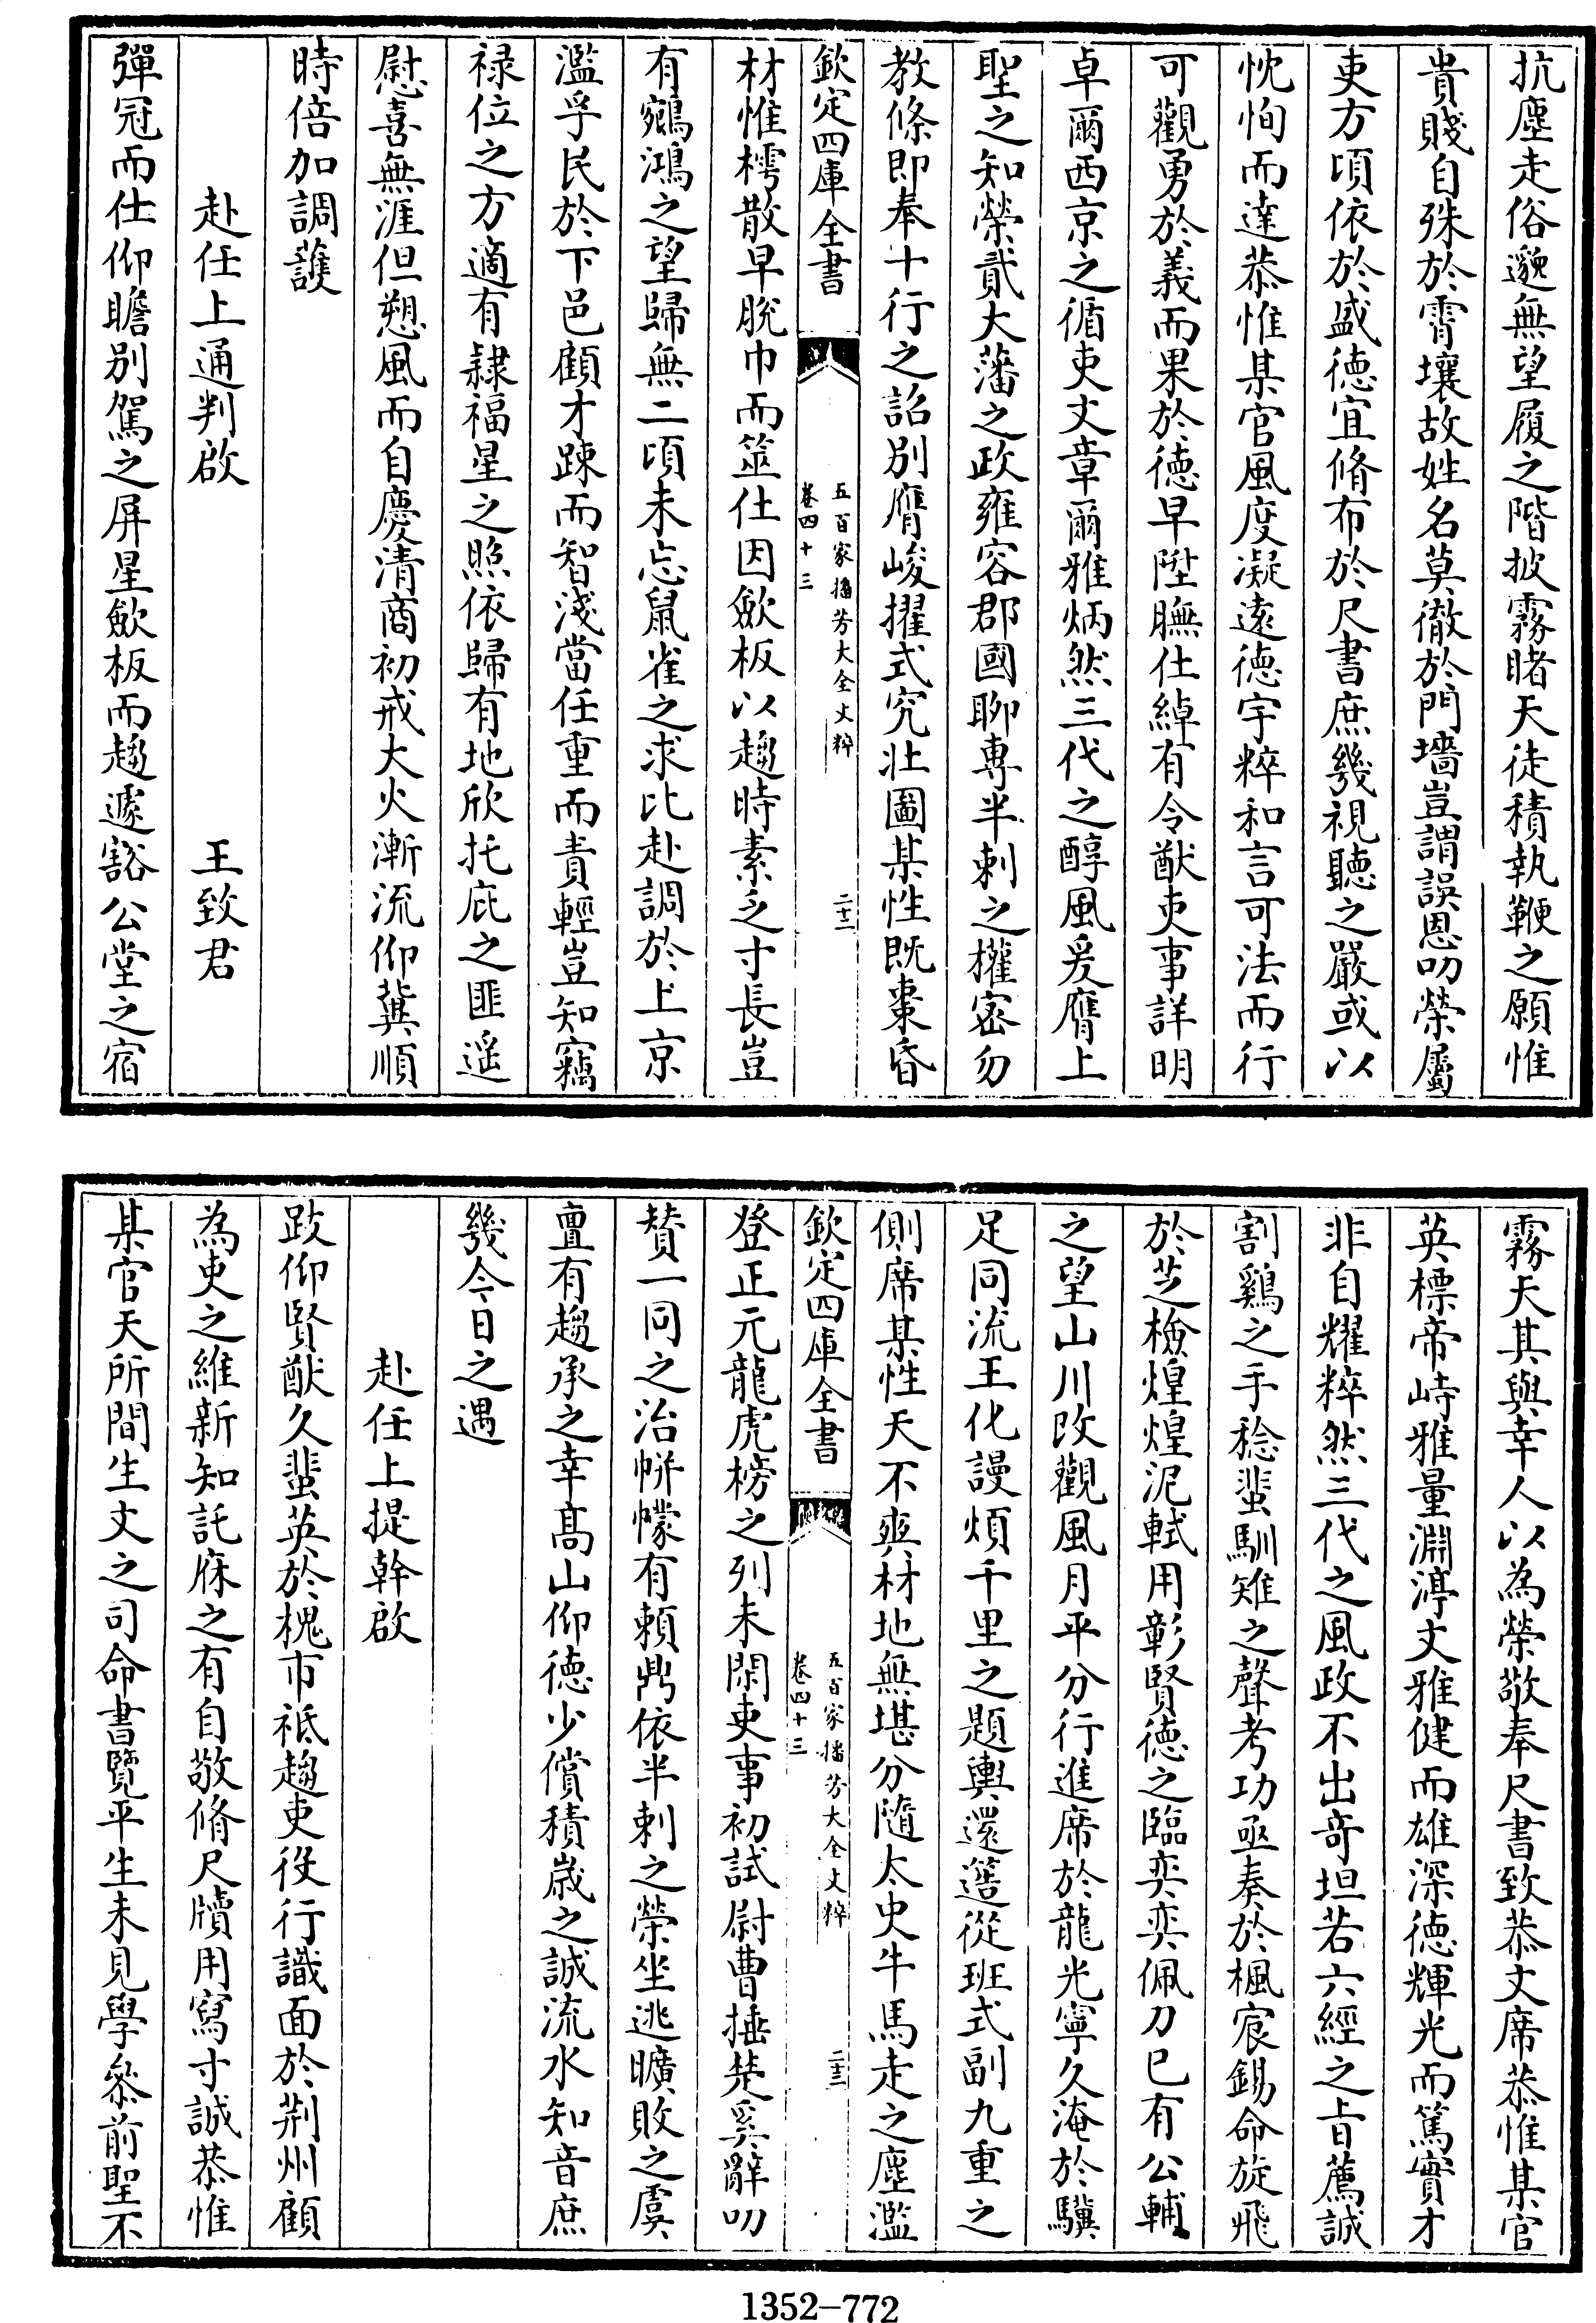 抗塵走俗邈無望履之階披霧睹天徒積執鞭之願惟
貴賤自殊於霄壤故姓名莫徹於門墻豈謂誤恩叨榮屬
吏方頃依於盛徳宜脩布於尺書庶幾視聽之嚴或以
忱恂而達恭惟某官風度凝逺徳宇粹和言可法而行
可觀勇於義而果於徳早陞膴仕綽有令猷吏事詳明
卓爾西京之循吏文章爾雅炳然三代之醇風爰膺上
聖之知榮貳大藩之政雍容郡國聊専半刺之權宻勿
教條即奉十行之詔别膺峻擢式究壯圖某性既棗昏
欽定四庫全書
五百家播芳大全文粹
卷四十三
二十二
材惟樗散早脱巾而筮仕因斂板以趨時素乏寸長豈
有鵷鴻之望歸無二頃未忘鼠雀之求比赴調於上京
濫孚民於下邑顧才踈而智淺當任重而責輕豈知竊
禄位之方適有隷福星之照依歸有地欣托庇之匪遥
慰喜無涯但愬風而自慶清商初戒大火漸流仰冀順
時倍加調護
赴任上通判啟
王致君
彈冠而仕仰瞻别駕之屏星斂板而趨遽豁公堂之宿
霧天其與幸人以為榮敬奉尺書致恭文席恭惟某官
英標帝峙雅量淵渟文雅健而雄深徳輝光而篤實才
非自耀粹然三代之風政不出竒坦若六經之㫖薦誠
割鷄之手稔蜚馴雉之聲考功亟奏於楓宸錫命旋飛
於芝檢煌煌泥軾用彰賢徳之臨奕奕佩刀已有公輔
之望山川改觀風月平分行進席於龍光寧久淹於驥
足同流王化謾煩千里之題輿還簉從班式副九重之
側席某性天不爽材地無堪分隨太史牛馬走之塵濫
欽定四庫全書
五百家播芳大全文粹
卷四十三
二十三
登正元龍虎榜之列未閑吏事初試尉曹捶楚奚辭叨
賛一同之治帡幪有賴鼎依半刺之榮坐逃曠敗之虞
亶有趨承之幸髙山仰徳少償積歳之誠流水知音庶
幾今日之遇
赴任上提幹啟
跂仰賢猷久蜚英於槐市祗趨吏役行識面於荆州顧
為吏之維新知託庥之有自敬脩尺牘用寫寸誠恭惟
某官天所間生文之司命書覽平生未見學叅前聖不
1352-772